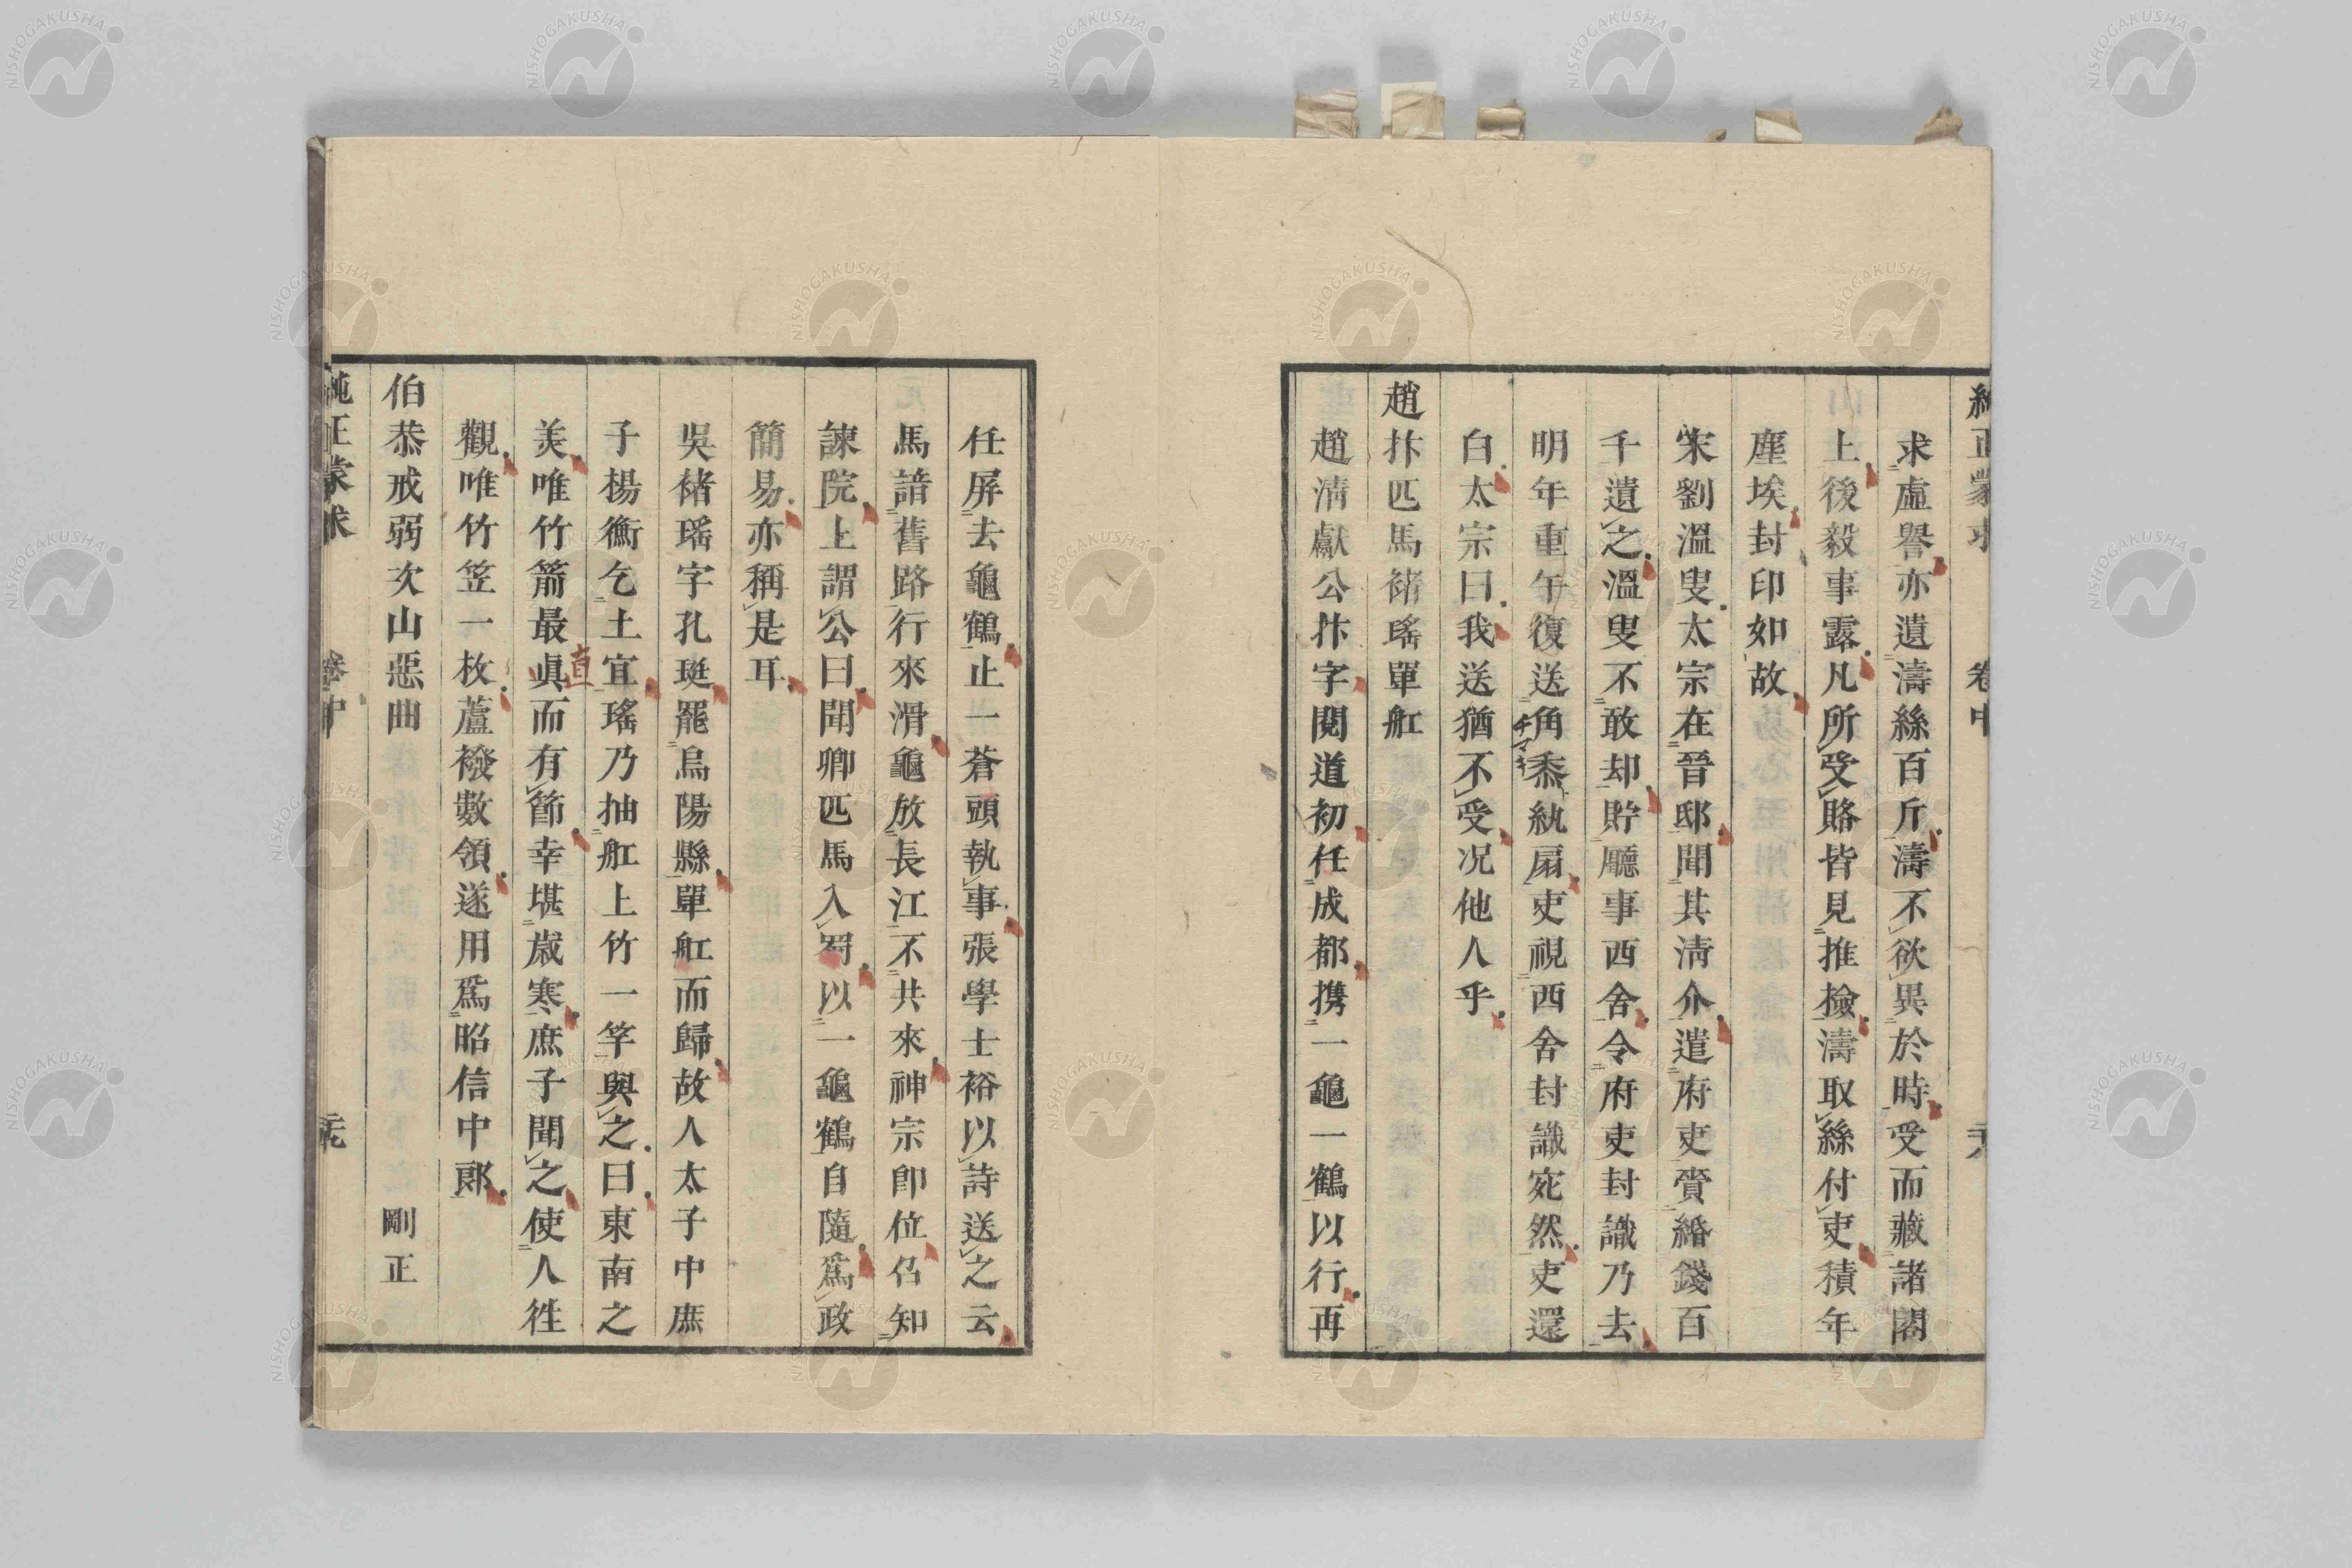 純正蒙求 卷中 六
求虛譽亦遺濤絲百斤濤不欲異於時受而藏諸閣
上後毅事露凡所受賂皆見推檢濤取絲付吏積年
塵埃封印如故
宋劉溫叟太宗在晉邸聞其淸介遣府吏賫緡錢百
千遺之溫叟不敢却貯廳事西舍令府吏封識乃去
明年重午復送角黍紈扇吏視西舍封識宛然吏還
チマキ
白太宗曰我送猶不受况他人乎
趙抃匹馬褚瑤單舡
趙淸獻公抃字閱道初任成都携一龜一鶴以行再
任屏去龜鶴止一蒼頭執事張學士裕以詩送之云
馬諳舊路行來滑龜放長江不共來神宗卽位召知
諫院上謂公曰聞卿匹馬入蜀以一龜鶴自隨爲政
簡易亦稱是耳
吳褚瑤字孔珽罷烏陽縣單舡而歸故人太子中庶
子楊衡乞土宜瑤乃抽舡上竹一竿與之曰東南之
美唯竹箭最眞而有節幸堪歲寒庶子聞之使人徃
直
觀唯竹笠一枚蘆襏數領遂用爲昭信中郞
伯恭戒弱次山惡曲 剛正
純正蒙求 卷中 元
NISHOGAKUSHA